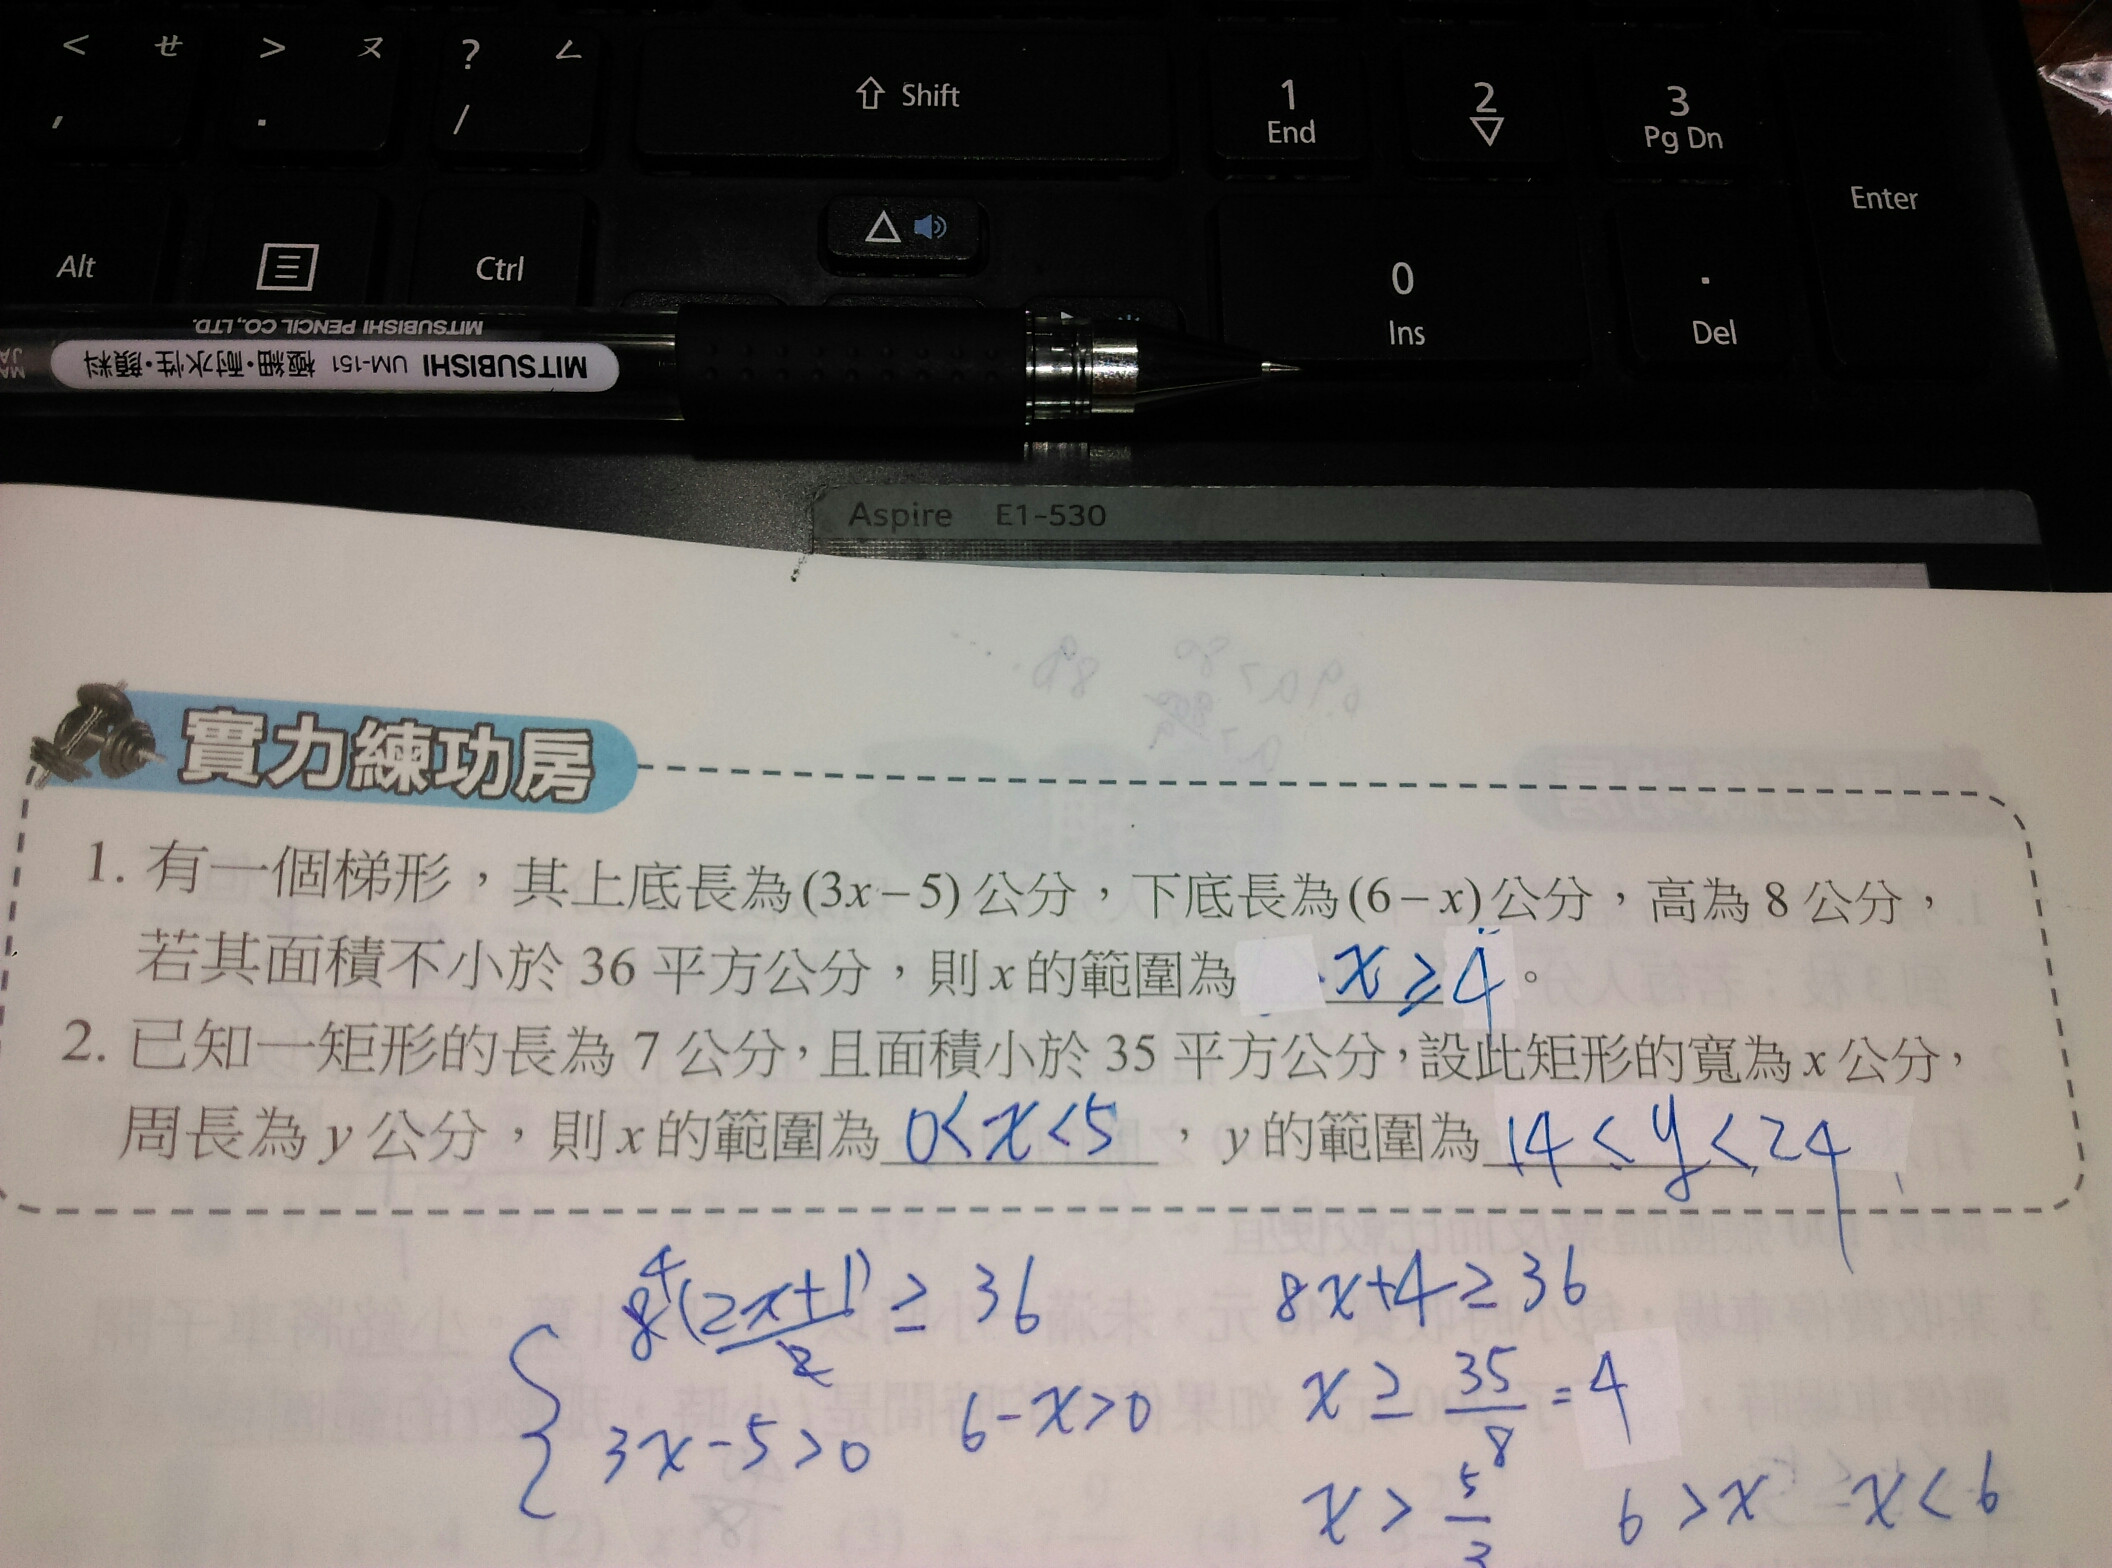 < ㄝ > ㄡ ? ㄥ ⇧ Shift 1 2 3
, . / End ▽ Pg Dn
Enter
Alt Ctrl △ 0 .
Ins Del
MITSUBISHI PENCIL CO., LTD.
MITSUBISHI UM-151 極細·耐水性·顏料
Aspire E1-530
實力練功房
1. 有一個梯形，其上底長為(3x−5)公分，下底長為(6−x)公分，高為8公分，
若其面積不小於36平方公分，則x的範圍為 x≥4。
2. 已知一矩形的長為7公分，且面積小於35平方公分，設此矩形的寬為x公分，
周長為y公分，則x的範圍為 0<x<5，y的範圍為 14<y<24
8 4 (2x+1)/2 ≥ 36 8x+4≥36
3x−5>0 6−x>0 x≥35/8=4
x>5/3 6>x x<6